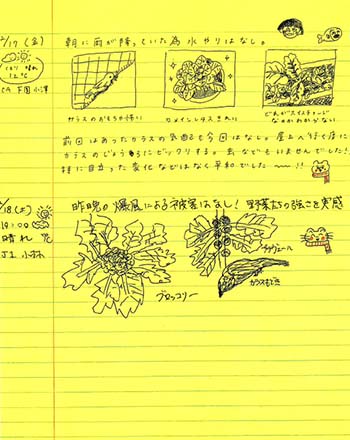 2/17 (金)
朝に雨が降っていた為 水やりはなし。
くもり 晴れ
12℃
カラスのおもちゃ怖い
ロメインレタスきれい
どれがスイスチャード
なのかわからない
前回はあったカラスの気配も今回はなし。屋上へ行く度に
カラスのじょうろにビックリする。虫などもいませんでした!
特に目立った変化などはなく平和でした〜!!
18(土)
10:00
晴れ
J1 小林
昨晩の爆風による被害はなし! 野菜たちの強さを実感
ブロッコリー
プチヴェール
カラスもどき